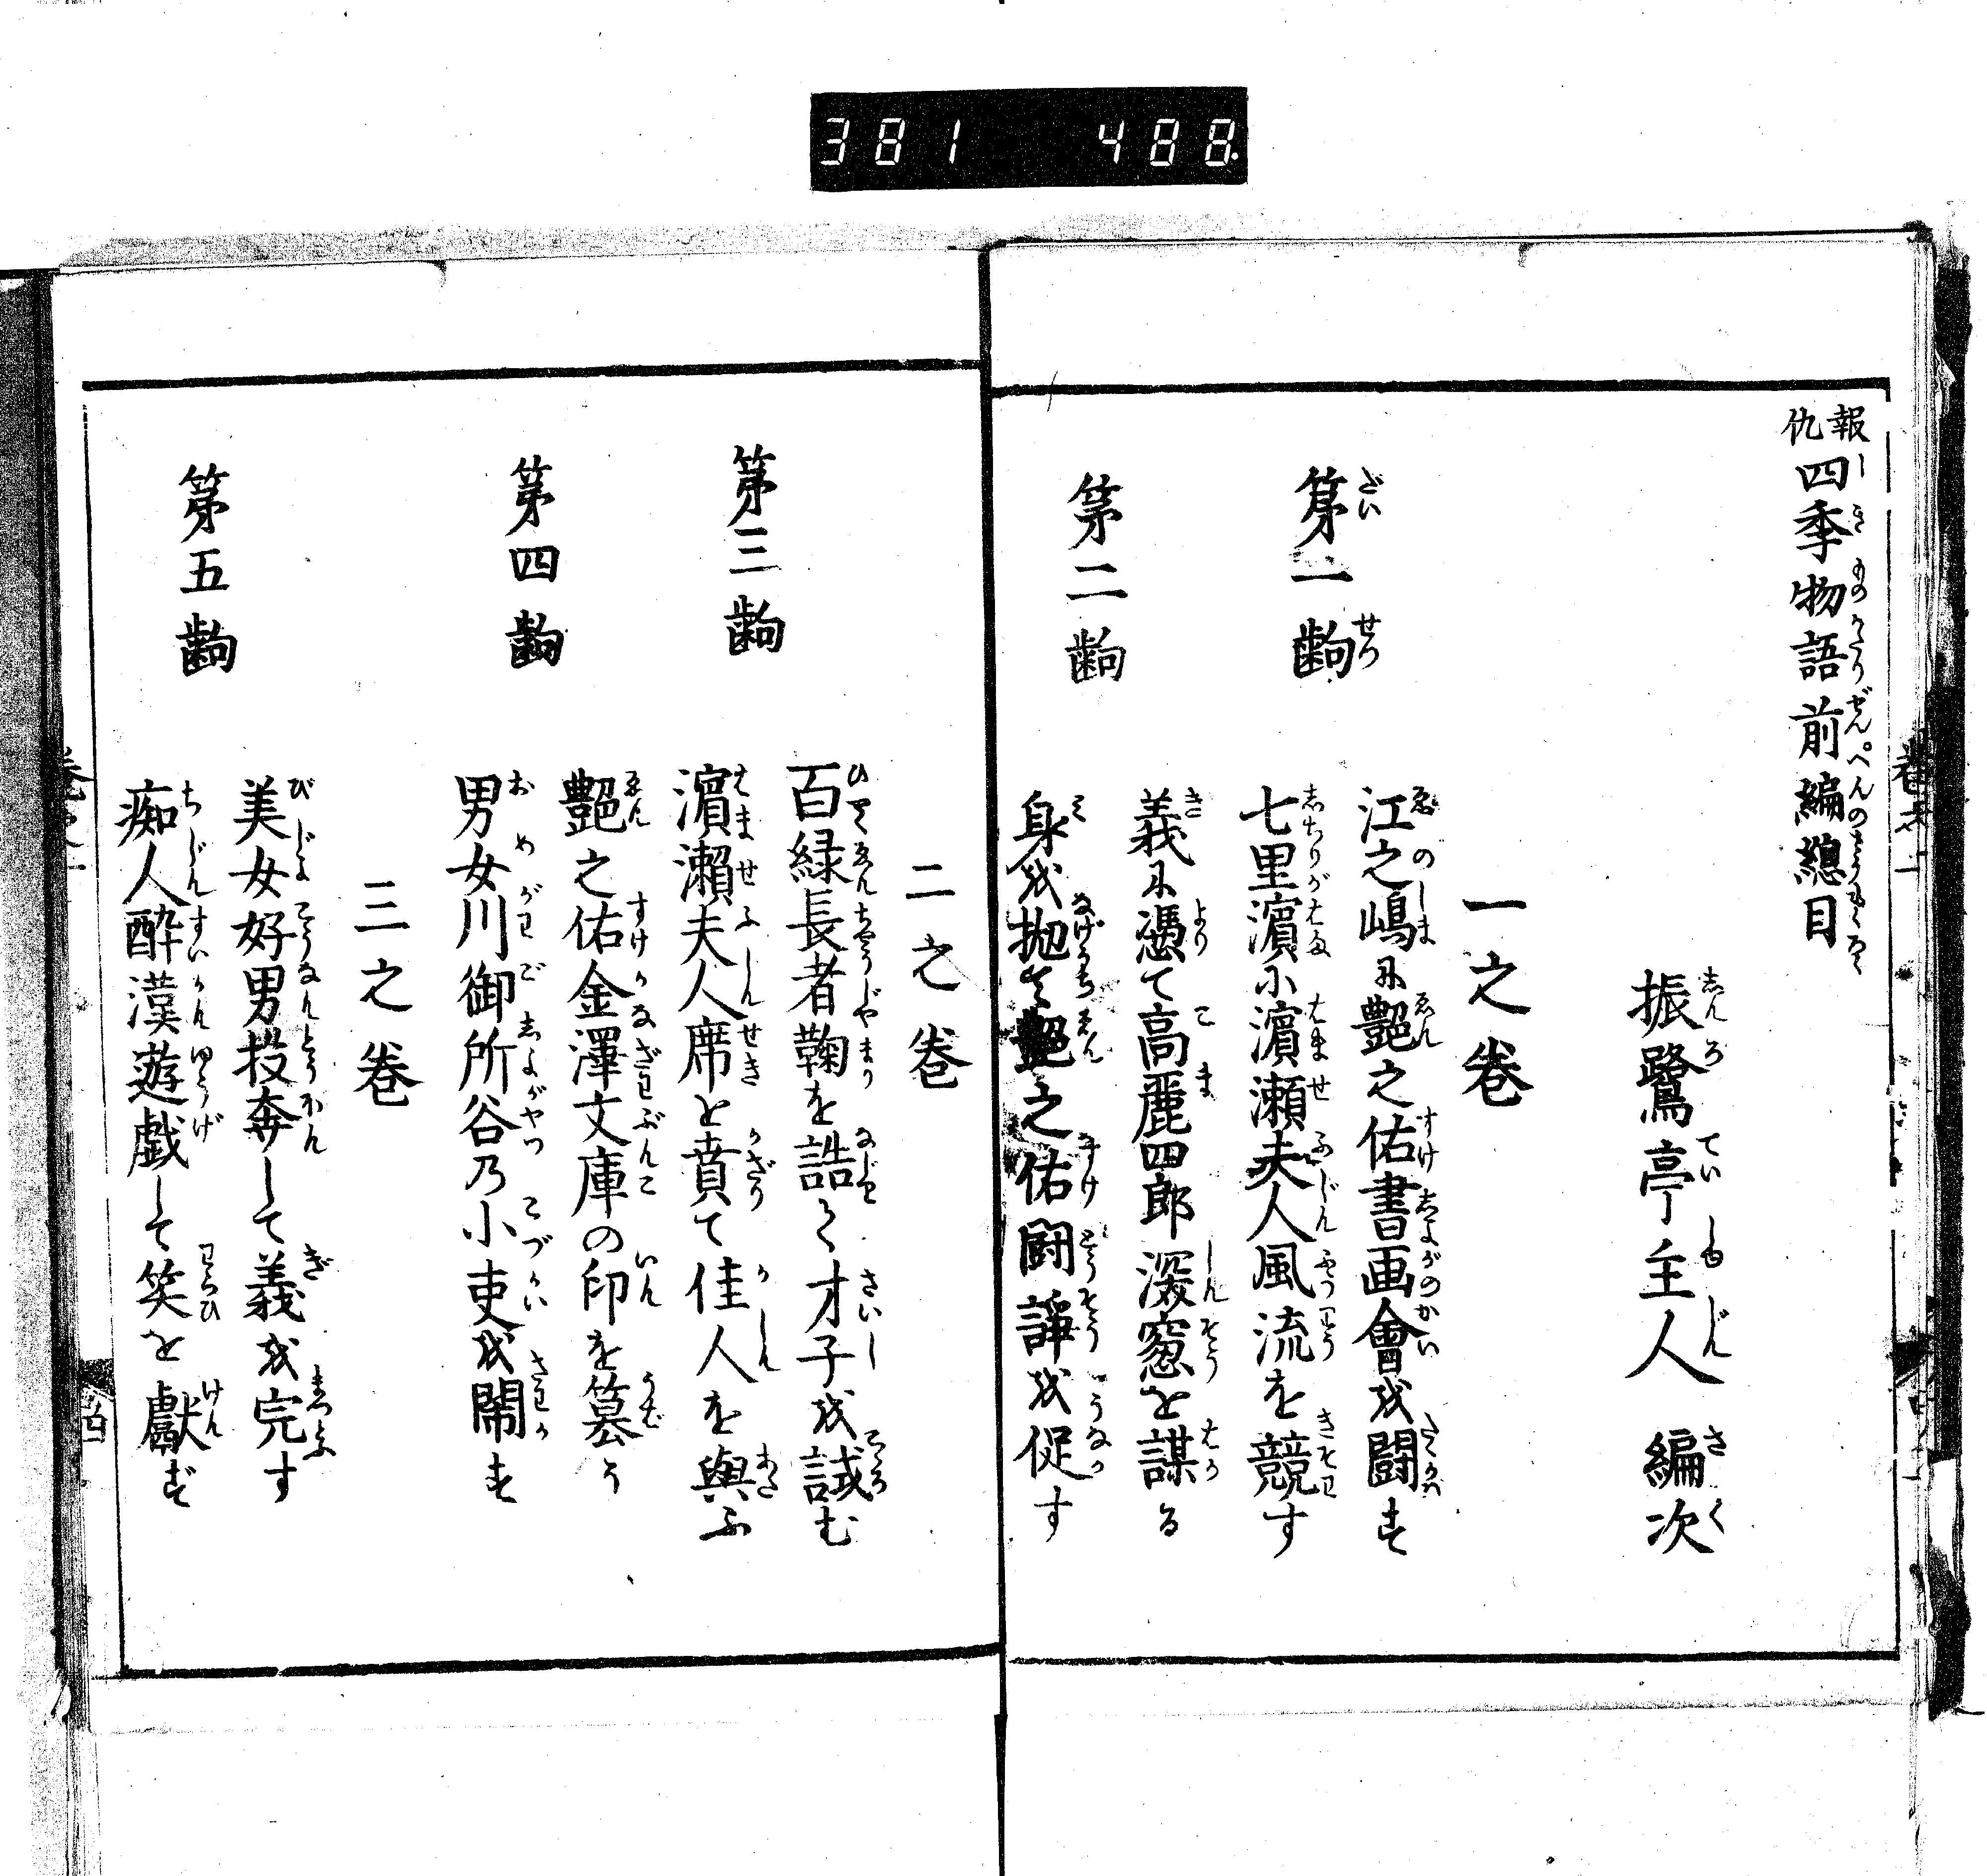 381 488
報仇四季物語前編總目
振鷺亭主人 編次
一之巻
第一齣
江之嶋に艶之佑書画會を闘す
七里濵に濵瀬夫人風流を競す
第二齣
義に憑て高麗四郎深窓を謀る
身を抛て艶之佑闘諍を促す
二之巻
第三齣
百緑長者鞠を誥て才子を試む
濵瀬夫人席を賁て佳人を與ふ
第四齣
艶之佑金澤文庫の印を簒う
男女川御所谷乃小吏を閙す
三之巻
第五齣
美女好男投奔して義を完す
痴人酔漢遊戯して笑を獻ず